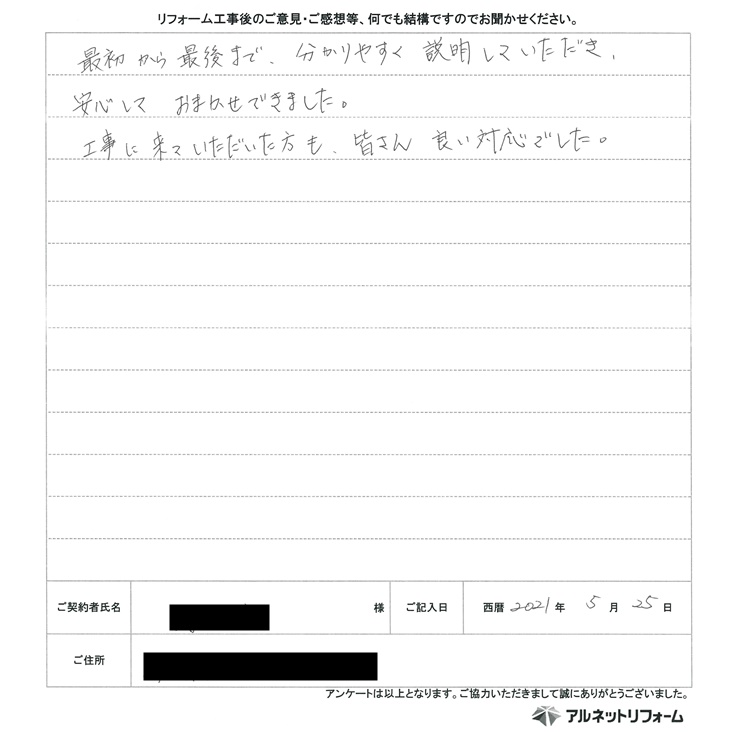 リフォーム工事後のご意見・ご感想等、何でも結構ですのでお聞かせください。
最初から最後まで、分かりやすく説明していただき、
安心しておまかせできました。
工事に来ていただいた方も、皆さん良い対応でした。
ご契約者氏名 様 ご記入日 西暦 2021 年 5 月 25 日
ご住所
アンケートは以上となります。ご協力いただきまして誠にありがとうございました。
アルネットリフォーム